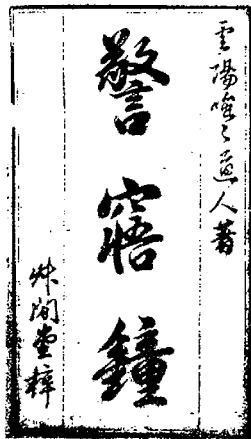 雲陽嗤嗤道人著
警寤鐘
艸閒堂梓